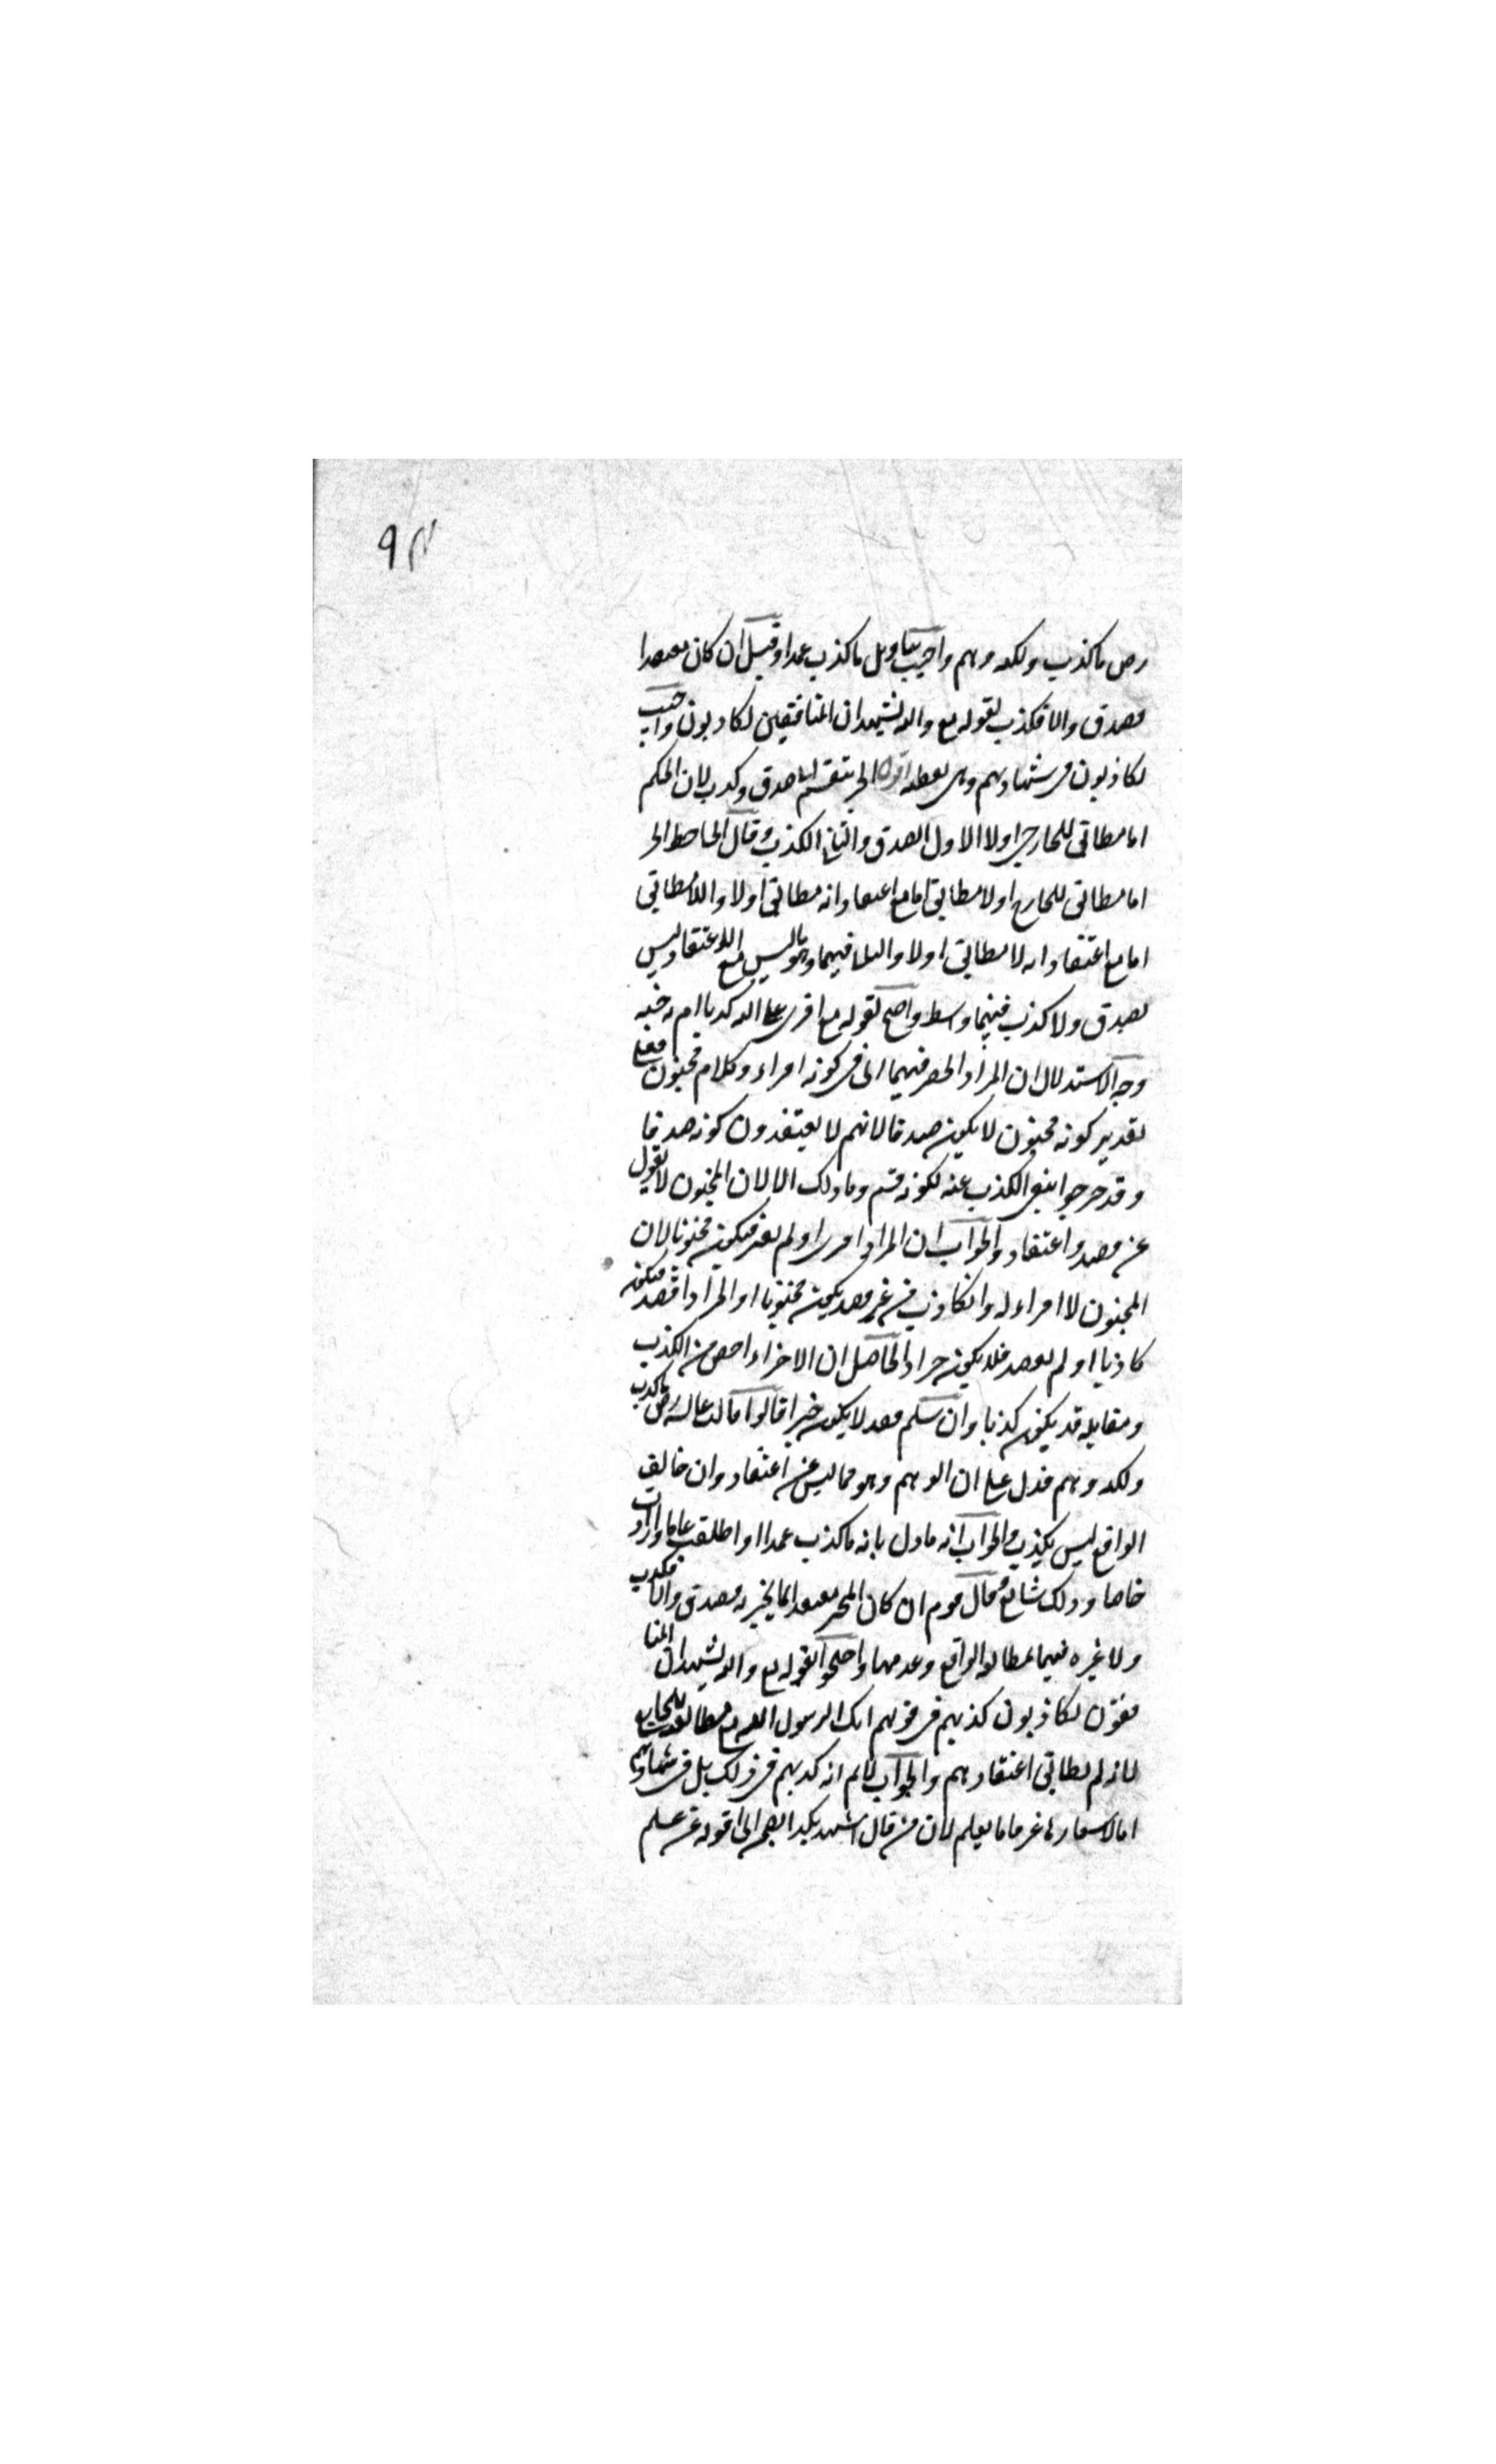 رض ما كذب ولكنه وهم واجيب بتاويل ما كذب عمدا وقيل ان كان معتقدا
فصدق والا فكذب لقوله تع والله يشهد ان المنافقين لكاذبون واجيب
لكاذبون في شهادتهم وهي لفظية اقول الخبر ينقسم الى صدق وكذب لان الحكم
اما مطابق للخارجي اولا الاول الصدق والثاني الكذب وقال الجاحظ الخبر
اما مطابق للخارج اولا مطابق اما مع اعتقاد انه مطابق اولا واللامطابق
اما مع اعتقاد انه لا مطابق اولا والثاني فيهما وهو ما ليس مع الاعتقاد ليس
بصدق ولا كذب فبينهما واسطة واحتج لقوله تع افترى على الله كذبا ام به جنة
وجه الاستدلال ان المراد الحصر فيهما اي في كونه افتراء وكلام مجنون فعلى
تقدير كونه مجنون لا يكون صدقا لانهم لا يعتقدون كونه صدقا
وقد صرحوا بنفي الكذب عنه لكونه قسيمه وما ذلك الا لان المجنون لا يقول
عن قصد واعتقاد والجواب ان المراد افترى او لم يفتر فيكون مجنونا لان
المجنون لا افتراء له والكاذب من غير قصد يكون مجنونا او المراد اقصد فيكون
كاذبا او لم يقصد فلا يكون خبرا والحاصل ان الافتراء اخص من الكذب
ومقابله قد يكون كذبا وان سلم فقد لا يكون خبرا قالوا قالت عايشة رض ما كذب
ولكنه وهم فدل على ان الوهم وهو مما ليس عن اعتقاد وان خالف
الواقع ليس بكذب والجواب انه ماول بانه ما كذب عمدا او اطلقت عاما وارادت
خاصا وذلك شايع وقال قوم ان كان المخبر معتقدا لما يخبر به فصدق والا فكذب
ولا غيره فيهما بمطابقة الواقع وعدمها واحتجوا بقوله تع والله يشهد ان المنا
فقين لكاذبون كذبهم في قولهم انك لرسول الله مع مطابقته للخارج
لانه لم يطابق اعتقادهم والجواب لا نم انه كذبهم في ذلك بل في شهادتهم
اما لاشعارها عرفا ما بعلم لان من قال اشهد بكذا تضمن اني اقوله عن علم